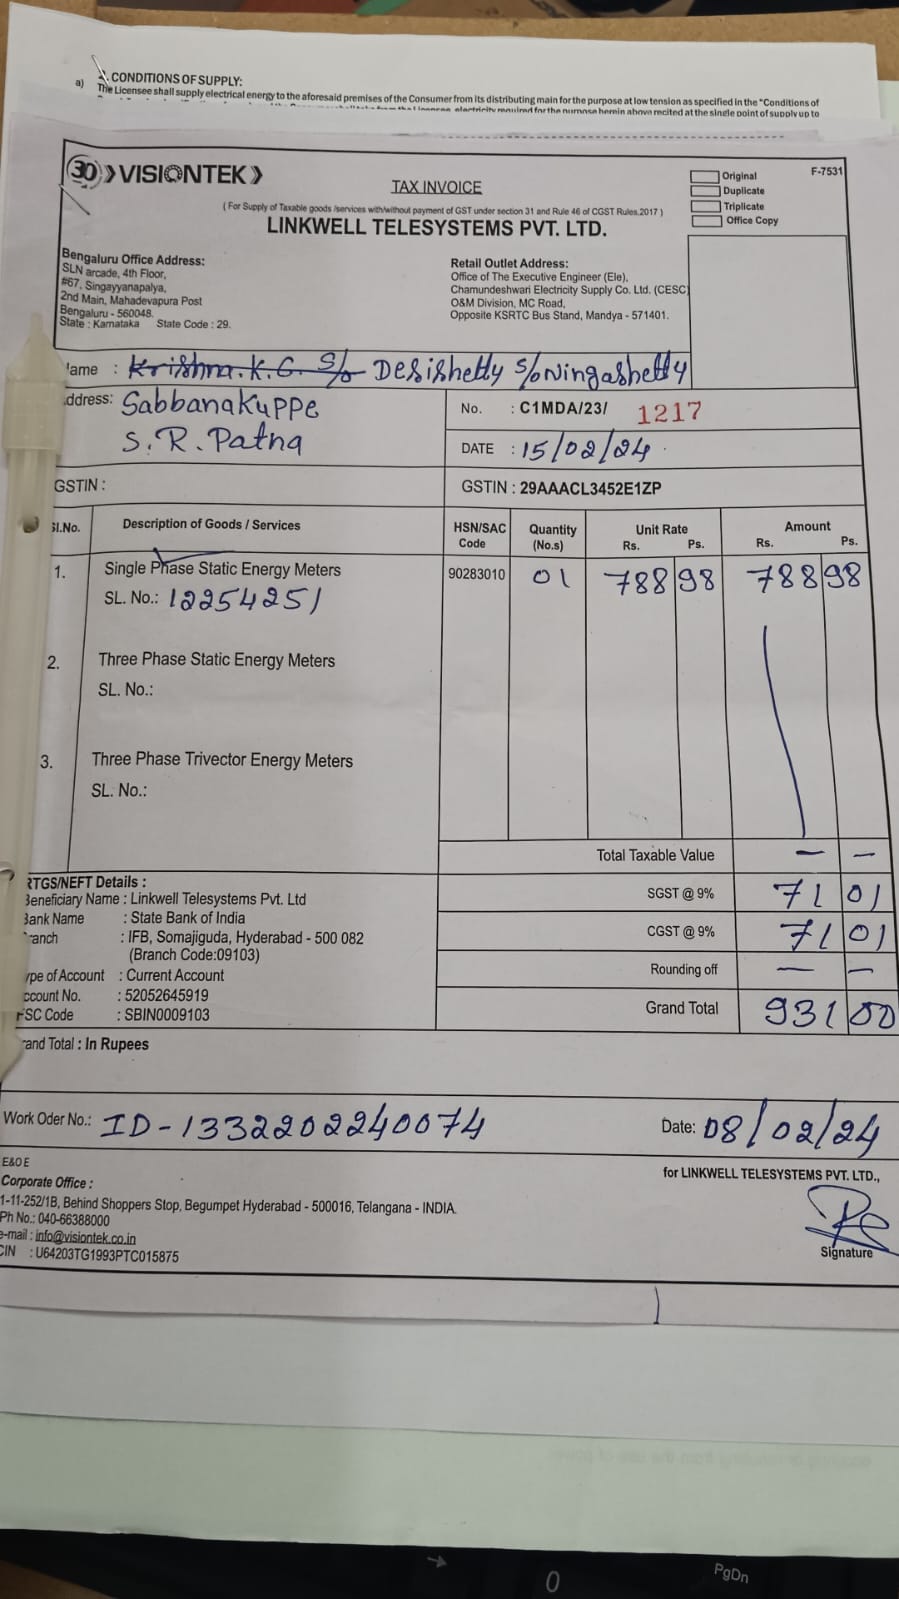 2. CONDITIONS OF SUPPLY:
a) The Licensee shall supply electrical energy to the aforesaid premises of the Consumer from its distributing main for the purpose at low tension as specified in the "Conditions of
electricity required for the purpose herein above recited at the single point of supply up to
30 VISIONTEK
TAX INVOICE
Original
Duplicate
Triplicate
Office Copy
F-7531
( For Supply of Taxable goods /services with/without payment of GST under section 31 and Rule 46 of CGST Rules,2017 )
LINKWELL TELESYSTEMS PVT. LTD.
Bengaluru Office Address:
SLN arcade, 4th Floor,
#67, Singayyanapalya,
2nd Main, Mahadevapura Post
Bengaluru - 560048.
State : Karnataka State Code : 29.
Retail Outlet Address:
Office of The Executive Engineer (Ele),
Chamundeshwari Electricity Supply Co. Ltd. (CESC)
O&M Division, MC Road,
Opposite KSRTC Bus Stand, Mandya - 571401.
ame : Krishna. K. G. S/o Desishetty S/o Ningashetty
ddress: Sabbanakuppe
S. R. Patna
No. : C1MDA/23/ 1217
DATE : 15/02/24
GSTIN :
GSTIN : 29AAACL3452E1ZP
Sl.No. Description of Goods / Services HSN/SAC Code Quantity (No.s) Unit Rate Rs. Ps. Amount Rs. Ps.
1. Single Phase Static Energy Meters 90283010 01 788 98 788 98
SL. No.: 12254251
2. Three Phase Static Energy Meters
SL. No.:
3. Three Phase Trivector Energy Meters
SL. No.:
Total Taxable Value — —
SGST @ 9% 71 01
CGST @ 9% 71 01
Rounding off — —
Grand Total 931 00
RTGS/NEFT Details :
Beneficiary Name : Linkwell Telesystems Pvt. Ltd
Bank Name : State Bank of India
ranch : IFB, Somajiguda, Hyderabad - 500 082
(Branch Code:09103)
ype of Account : Current Account
ccount No. : 52052645919
FSC Code : SBIN0009103
rand Total : In Rupees
Work Oder No.: ID-1332202240074
Date: 08/02/24
E&OE
Corporate Office :
1-11-252/1B, Behind Shoppers Stop, Begumpet Hyderabad - 500016, Telangana - INDIA.
Ph No.: 040-66388000
e-mail : info@visiontek.co.in
CIN : U64203TG1993PTC015875
for LINKWELL TELESYSTEMS PVT. LTD.,
Signature
0
PgDn